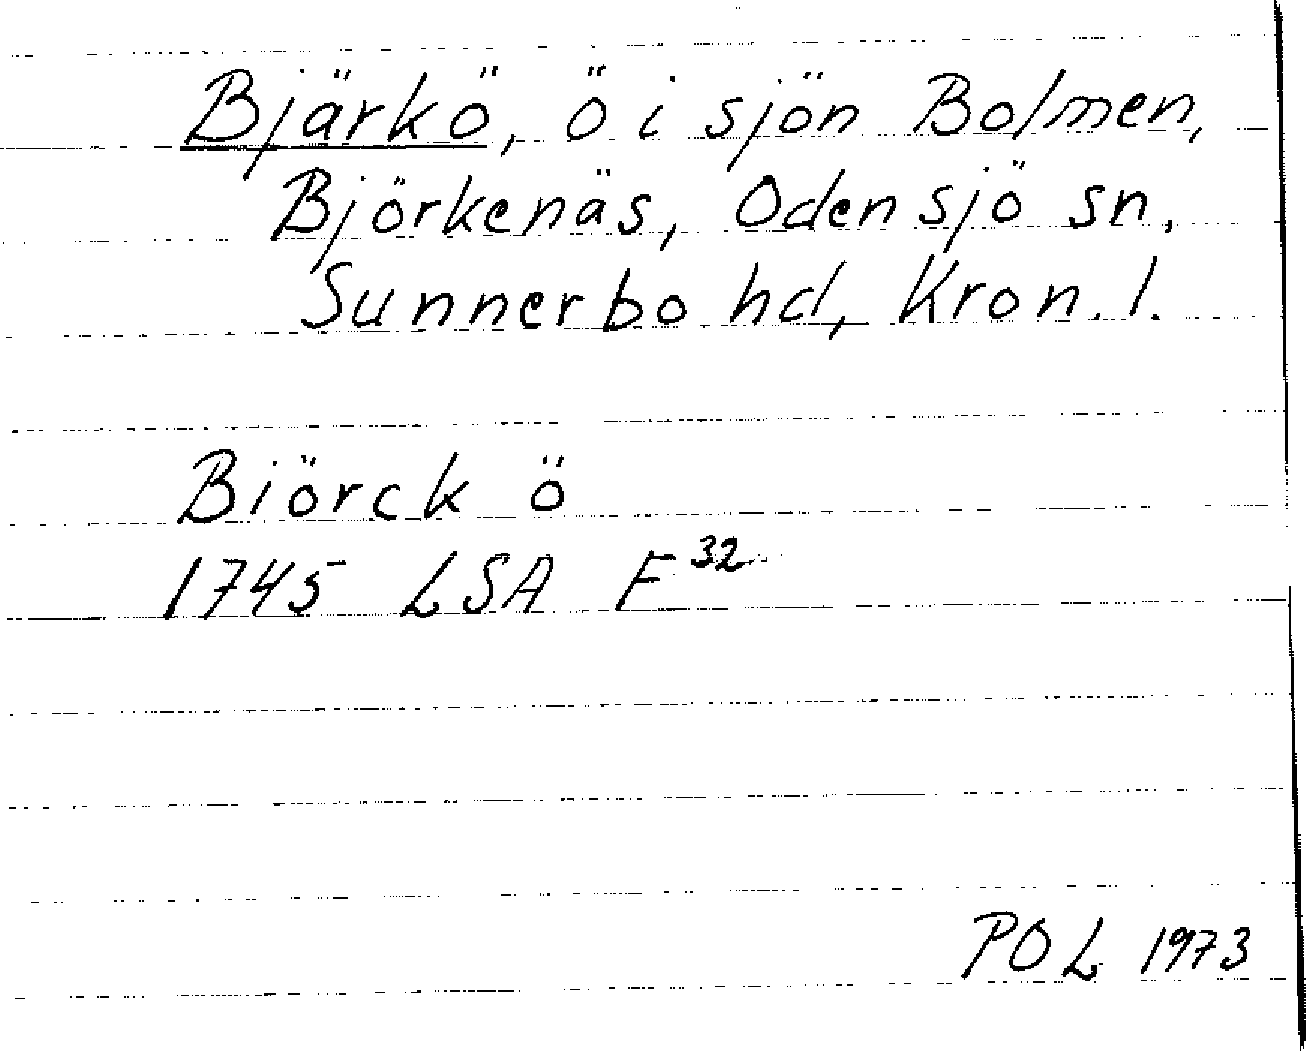 Bjärkö, ö i sjön Bolmen,
Björkenäs, Odensjö sn,
Sunnerbo hd, Kron. l.
Biörck ö
1745 LSA F³²
POL 1973